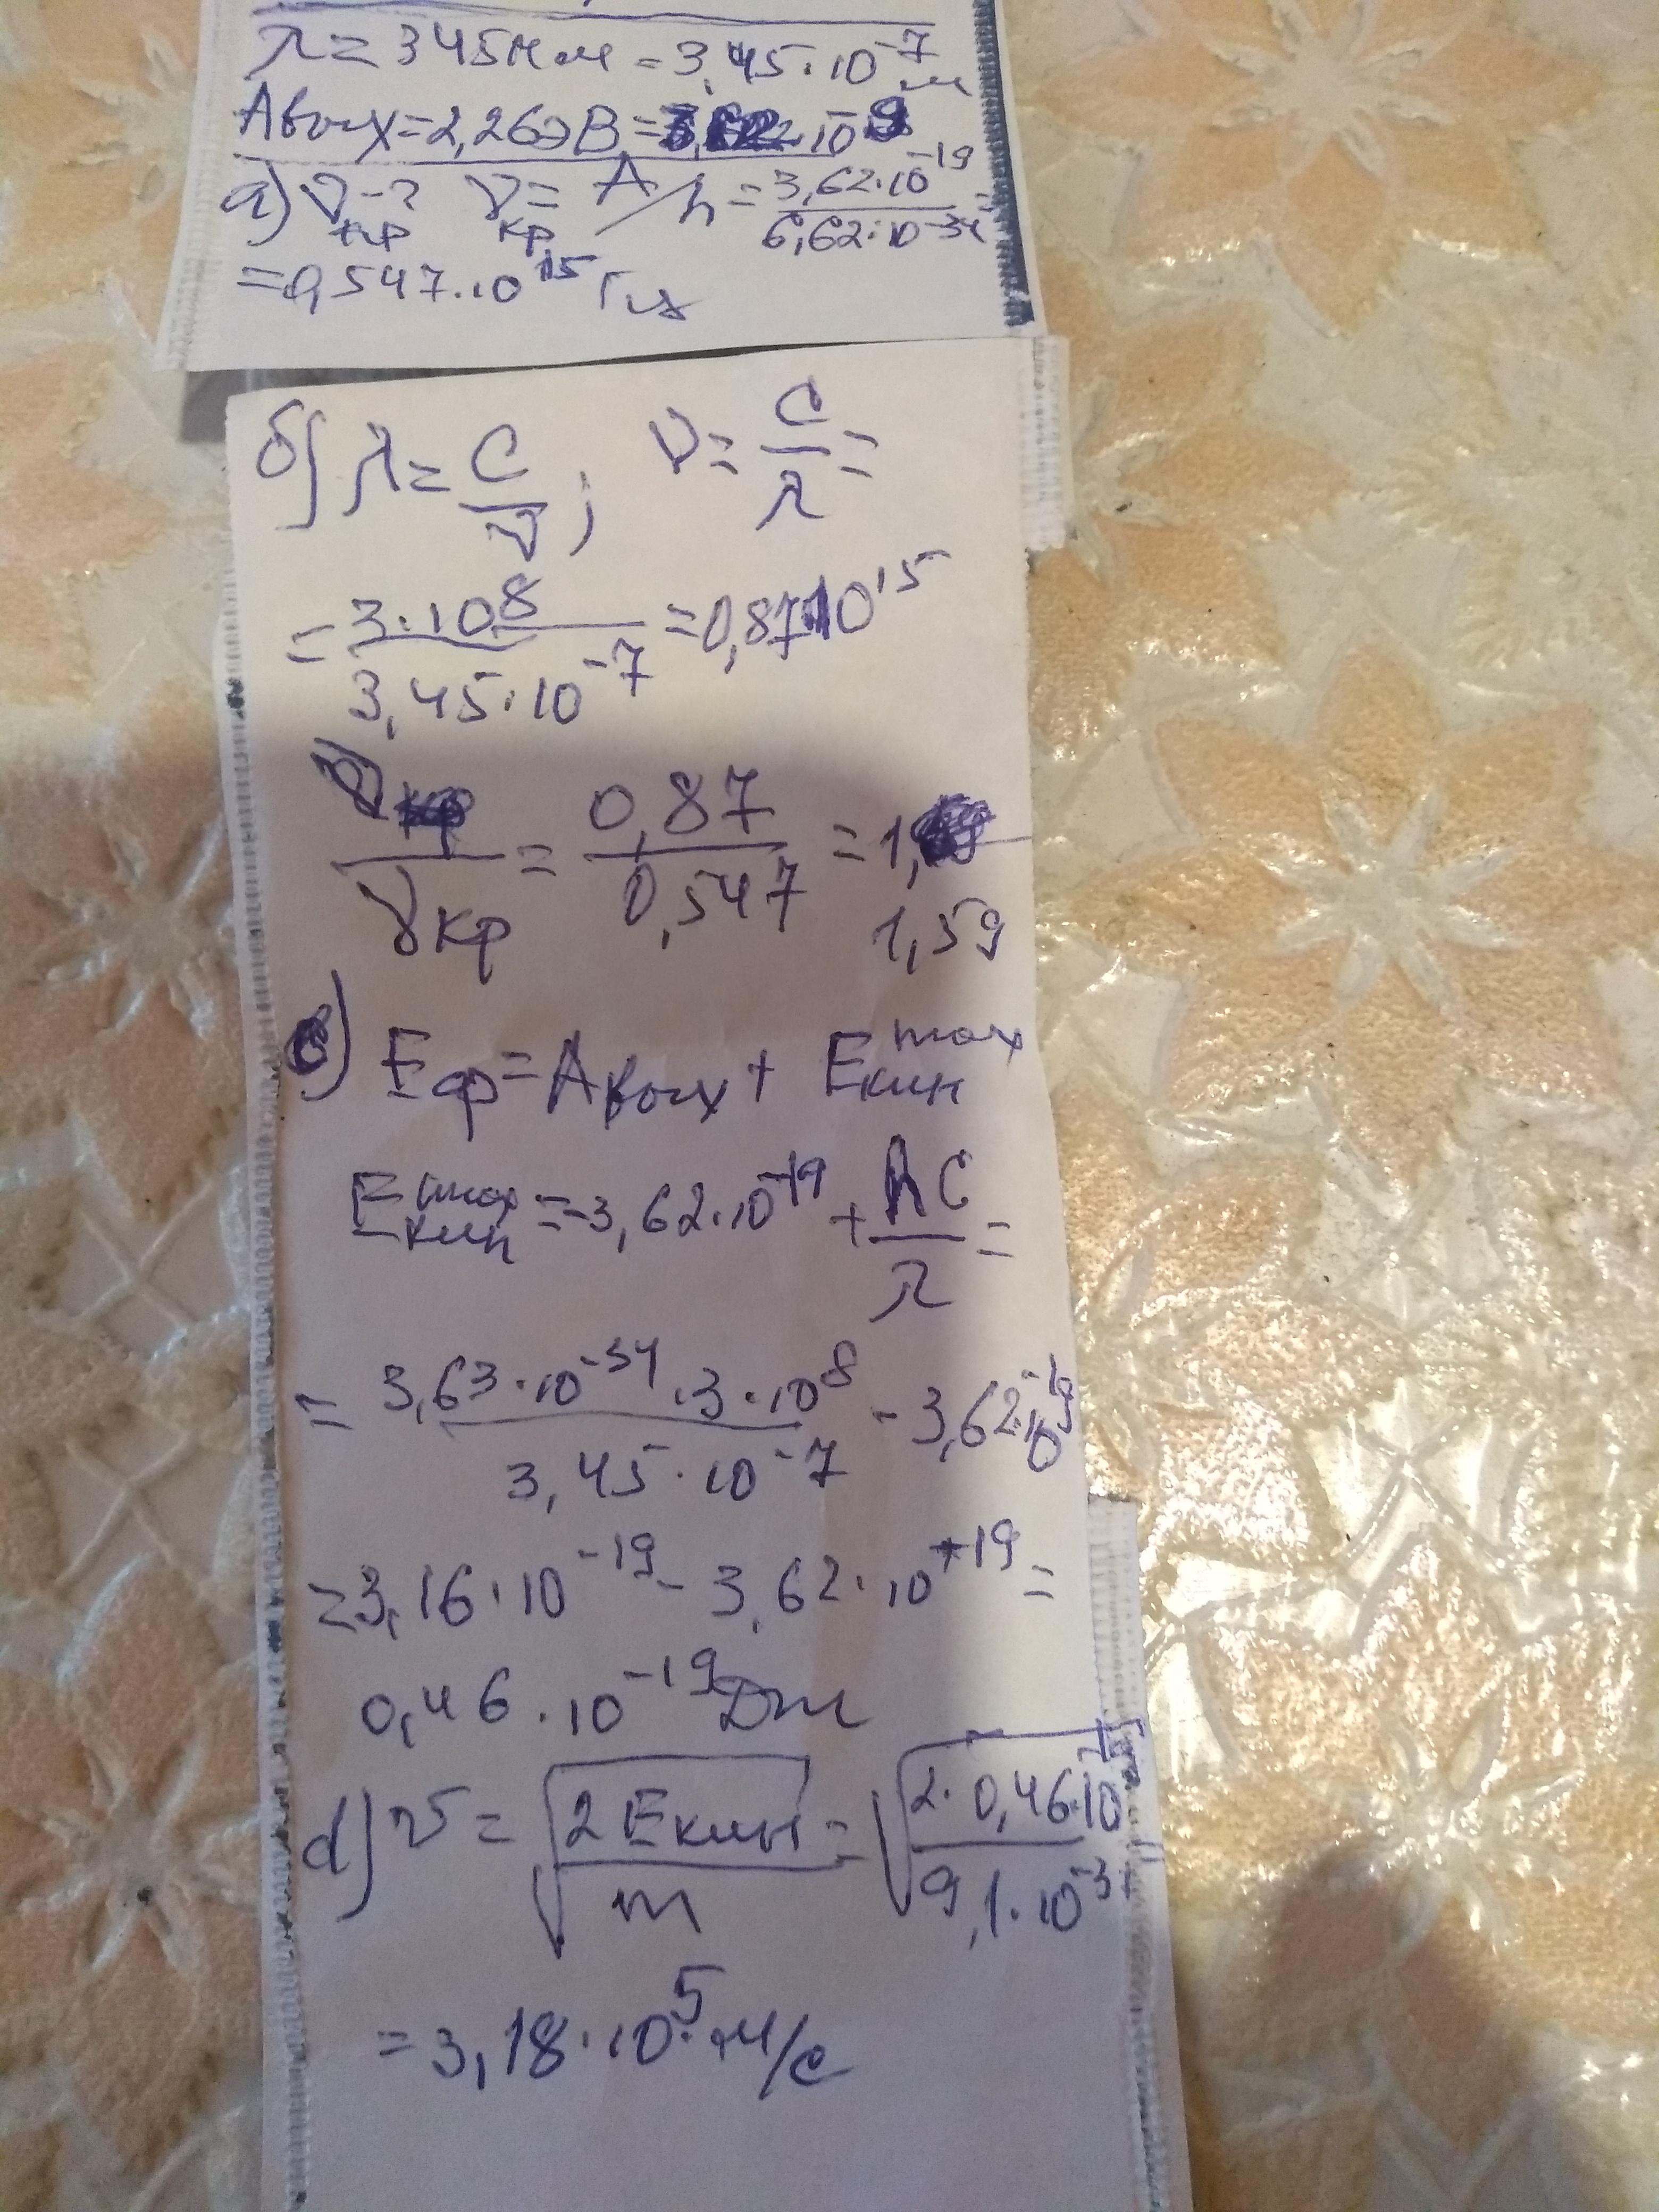 λ = 345 нм = 3,45·10^-7 м
Aвых = 2,26 эВ = 3,62·10^-19
а) ν кр -? ν кр = A/h = 3,62·10^-19 / 6,62·10^-34 =
= 0,547·10^15 Гц
б) λ = c/ν ; ν = c/λ =
= 3·10^8 / 3,45·10^-7 = 0,87·10^15
ν / ν кр = 0,87 / 0,547 = 1,
1,59
с) Eф = Aвых + Eкин^max
Eкин^max = -3,62·10^-19 + hc/λ =
= 3,63·10^-34 · 3·10^8 / 3,45·10^-7 - 3,62·10^-19
= 3,16·10^-19 - 3,62·10^+19 =
0,46·10^-19 Дж
d) v = √(2Eкин / m) = √(2·0,46·10 / 9,1·10^-31)
= 3,18·10^5 м/с